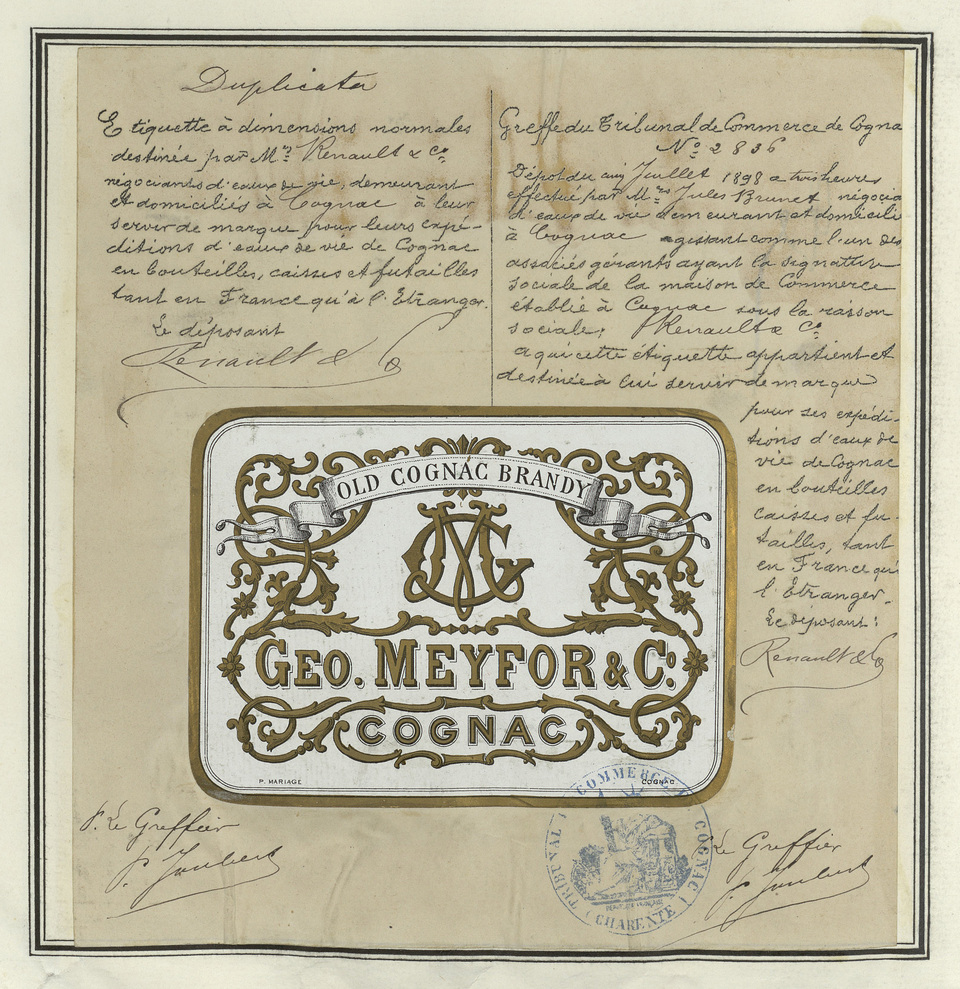 Duplicata
Etiquette à dimensions normales
destinée par Mrs Renault & Co
négociants d'eaux de vie, demeurant
et domiciliés à Cognac à leur
servir de marque pour leurs expé-
ditions d'eaux de vie de Cognac
en bouteilles, caisses et futailles
tant en France qu'à l'Etranger.
Le déposant
Renault & Co
Greffe du Tribunal de Commerce de Cogna
No 2836
Dépôt du cinq Juillet 1898 a trois heures
effectué par Mrs Jules Brunet négocia
d'eaux de vie demeurant et domicilié
à Cognac agissant comme l'un des
associés gérants ayant la signature
sociale de la maison de Commerce
établie à Cognac sous la raison
sociale, Renault & Co
a qui cette étiquette appartient et
destinée à lui servir de marque
pour ses expédi-
tions d'eaux de
vie de Cognac
en bouteilles
caisses et fu-
tailles, tant
en France qu'à
l'Etranger.
Le déposant :
Renault & Co
OLD COGNAC BRANDY
GEO. MEYFOR & Co.
COGNAC
P. MARIAGE COGNAC
P. Le Greffier
P. Joubert
TRIBUNAL DE COMMERCE DE COGNAC
(CHARENTE)
Le Greffier
P. Joubert